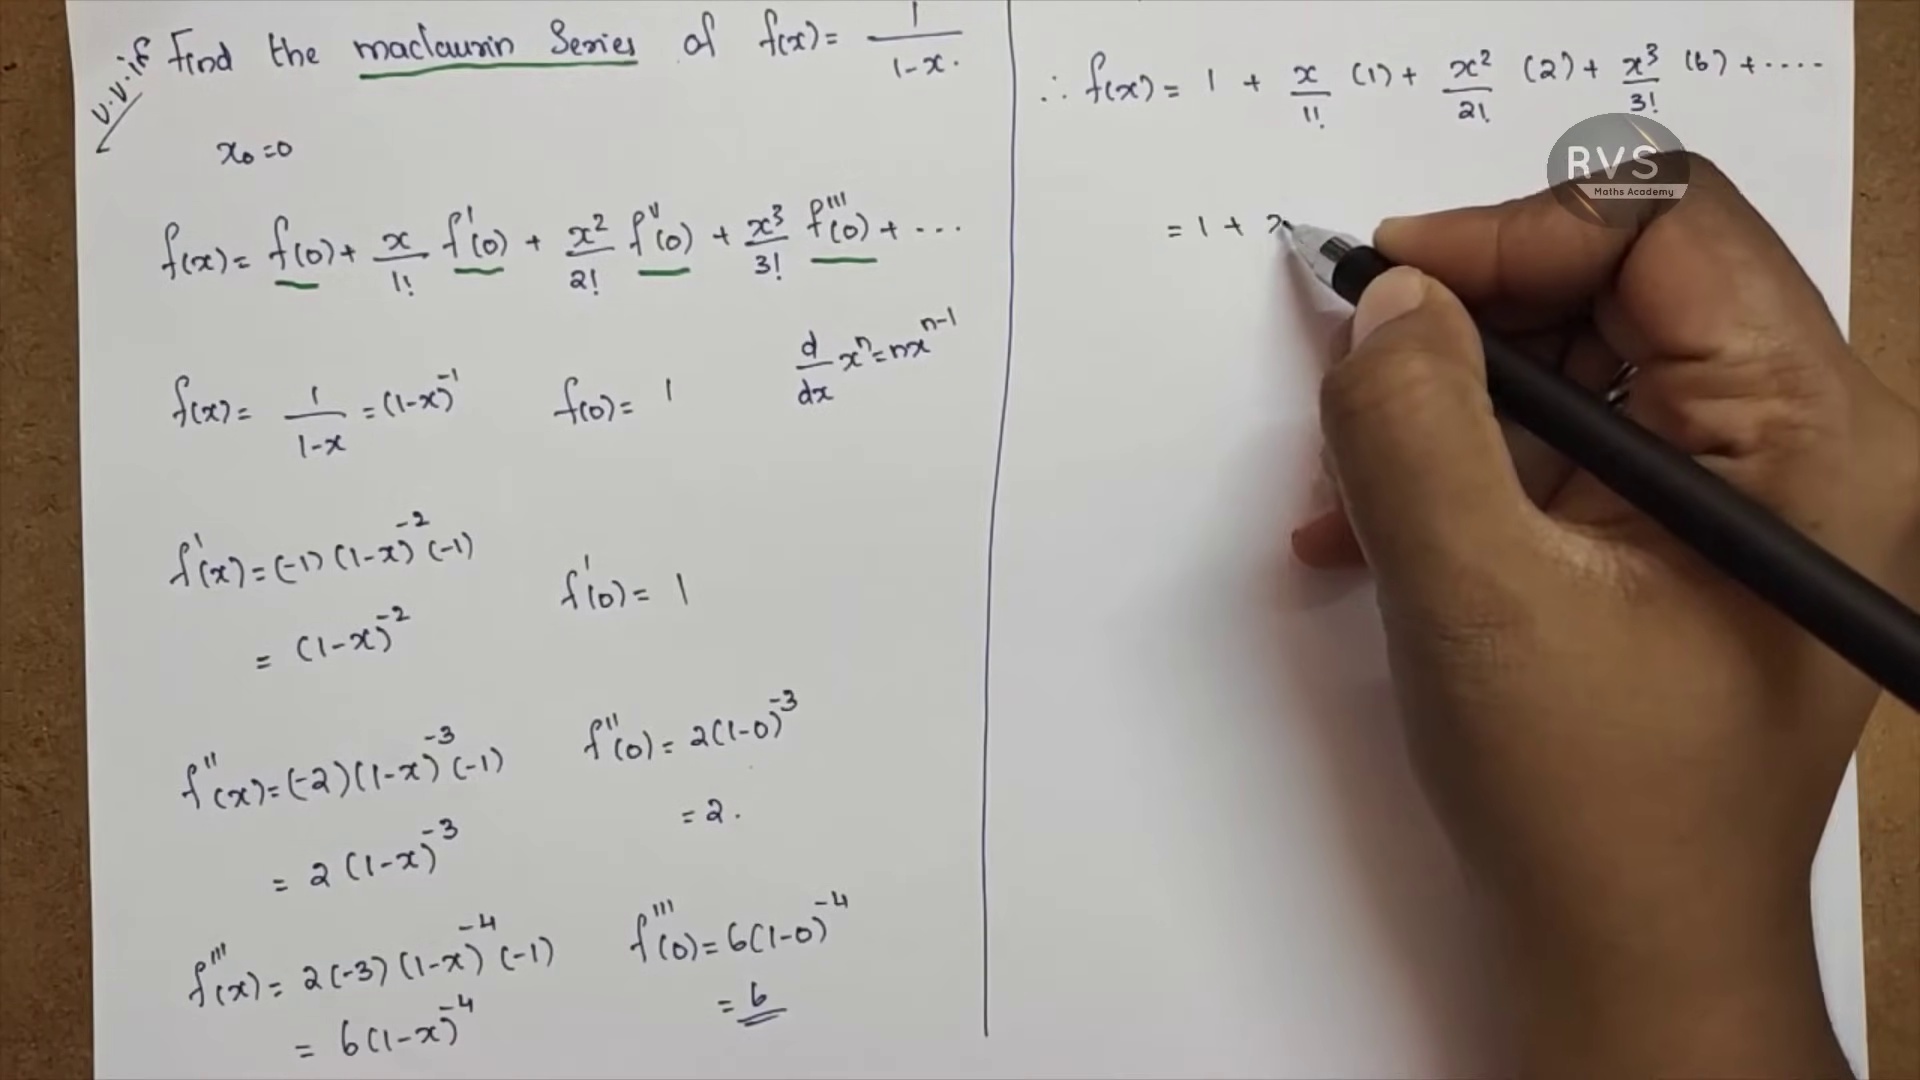 v.v.if
Find the maclaurin Series of f(x) = 1/(1-x).
x₀=0
f(x) = f(0) + x/1! f'(0) + x²/2! f''(0) + x³/3! f'''(0) + ...
d/dx xⁿ = nxⁿ⁻¹
f(x) = 1/(1-x) = (1-x)⁻¹ f(0) = 1
f'(x) = (-1)(1-x)⁻²(-1)
= (1-x)⁻² f'(0) = 1
f''(x) = (-2)(1-x)⁻³(-1) f''(0) = 2(1-0)⁻³
= 2(1-x)⁻³ = 2.
f'''(x) = 2(-3)(1-x)⁻⁴(-1) f'''(0) = 6(1-0)⁻⁴
= 6(1-x)⁻⁴ = 6
∴ f(x) = 1 + x/1! (1) + x²/2! (2) + x³/3! (6) + ....
= 1 +
RVS
Maths Academy